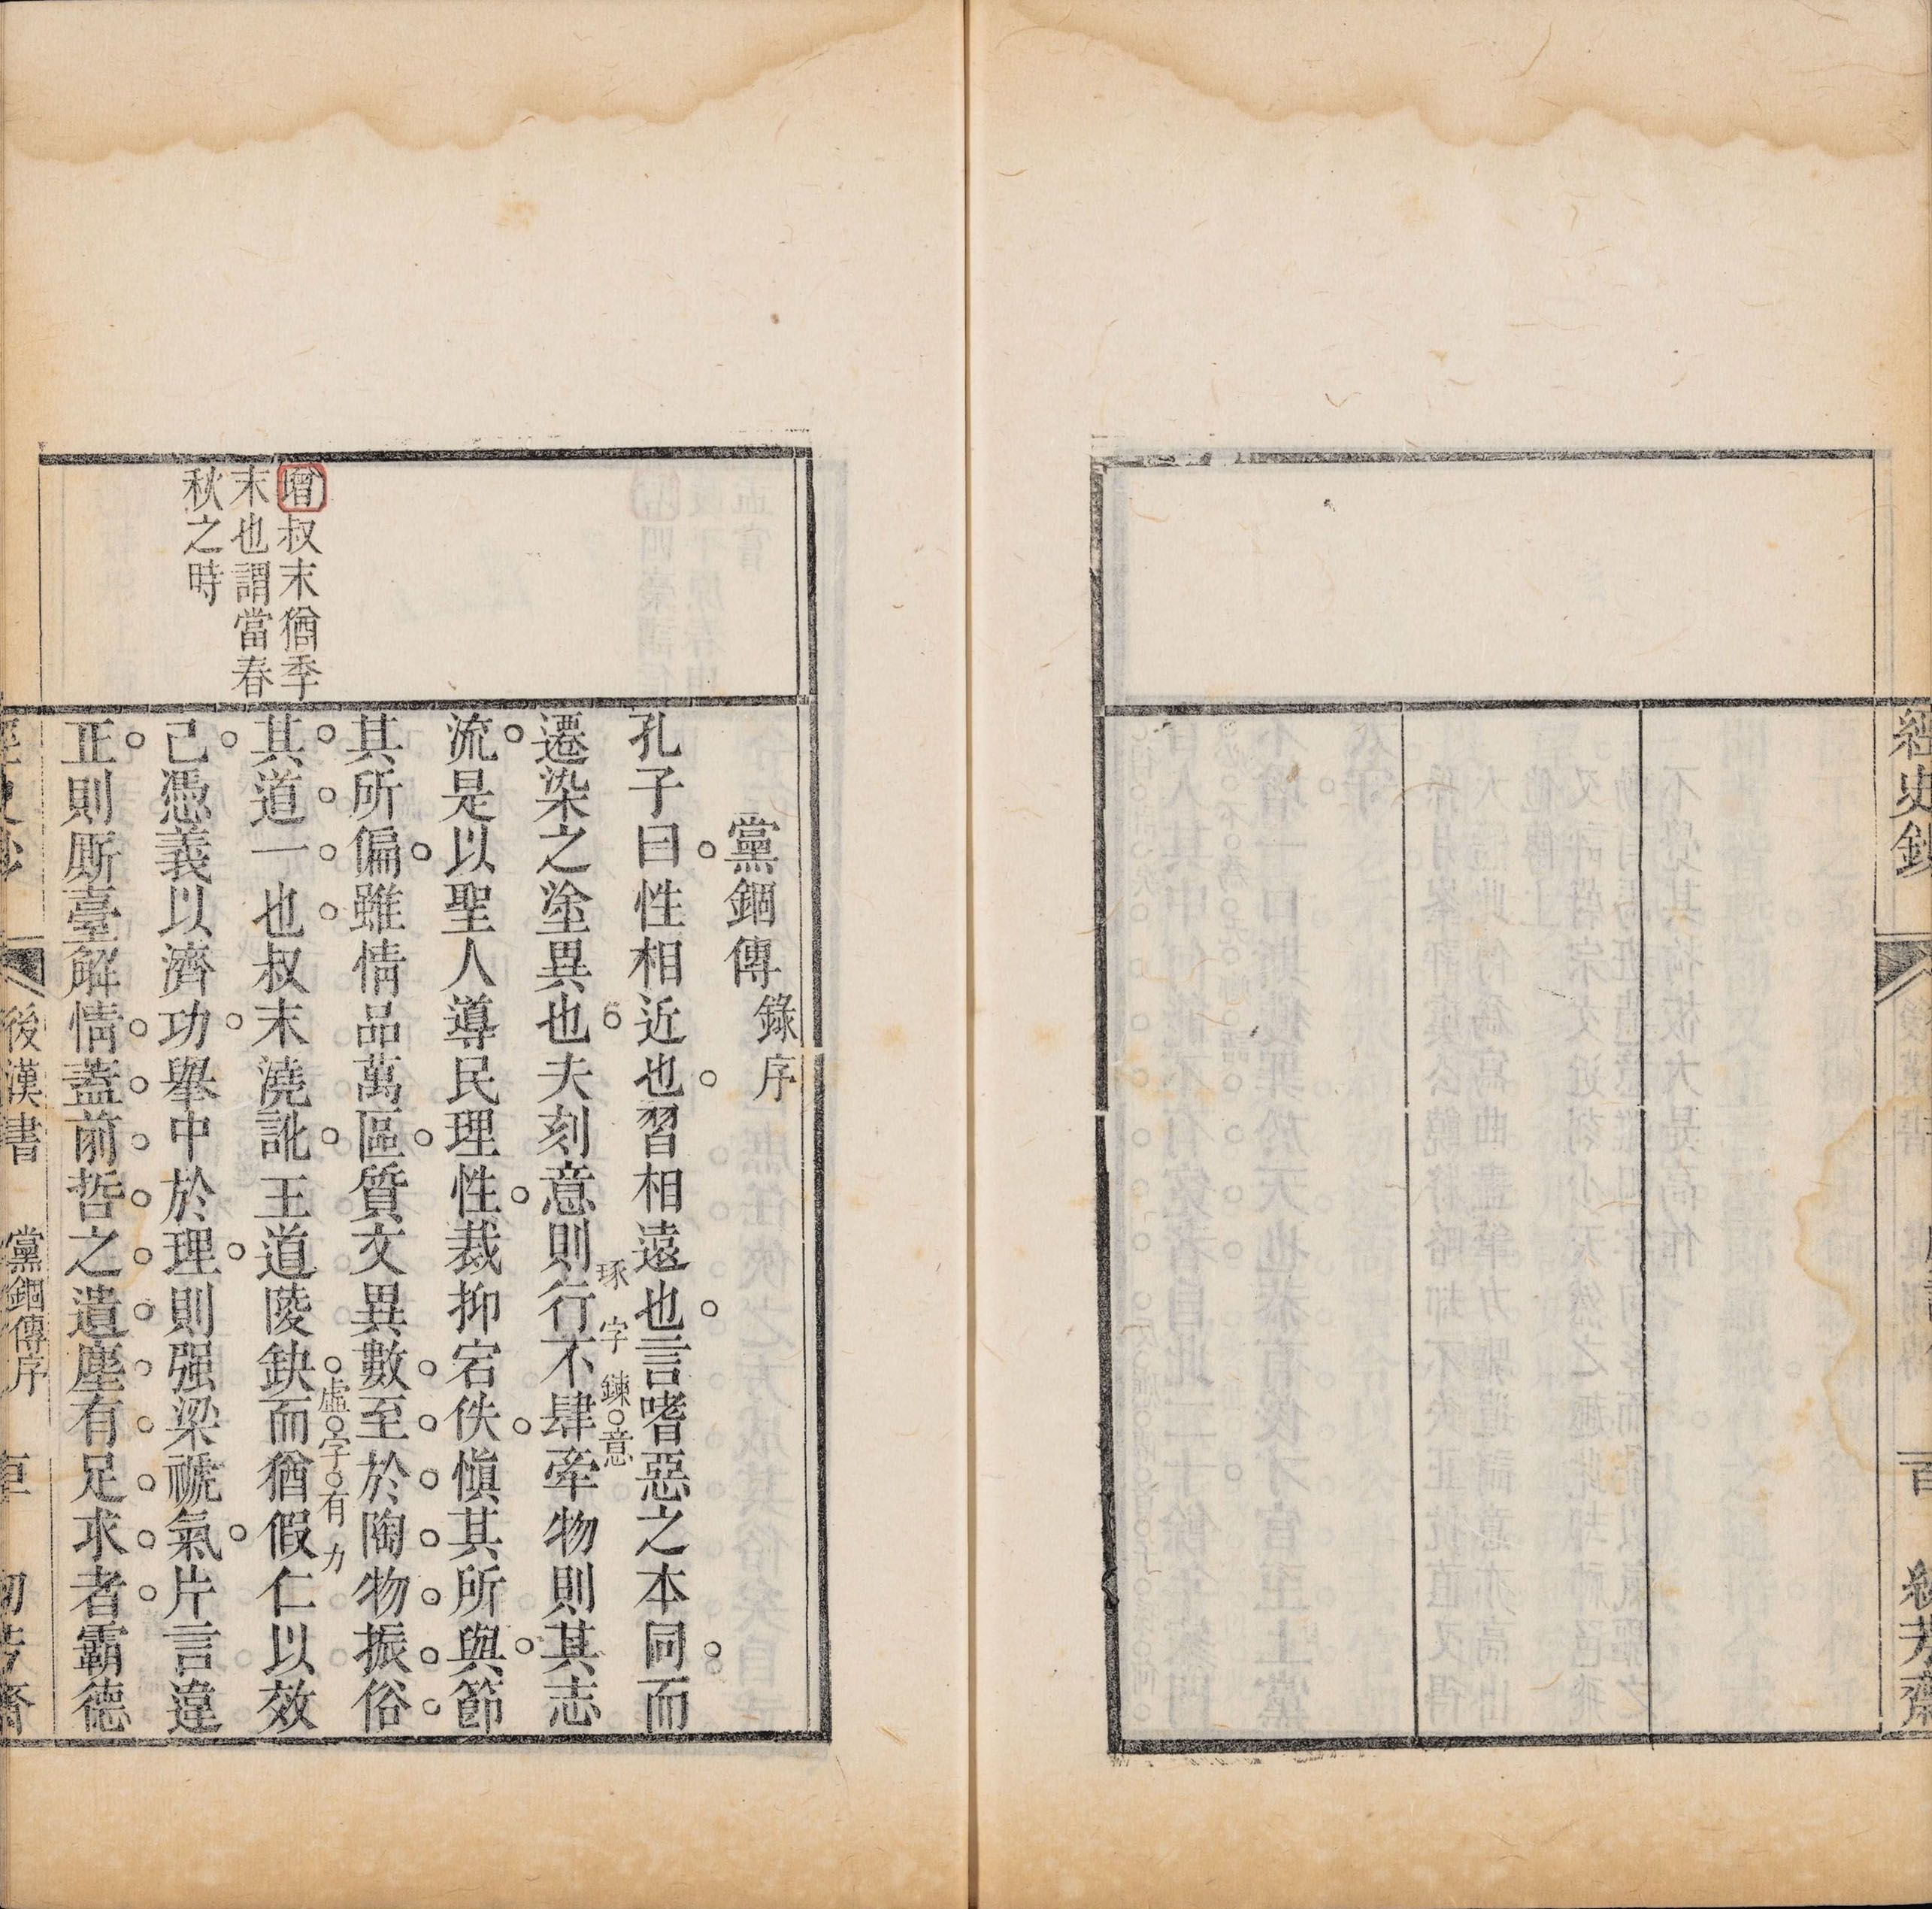 經史鈔
百
紉芳齋
增叔末猶季
末也謂當春
秋之時
黨錮傳 錄序
孔子曰性相近也習相遠也言嗜惡之本同而
遷染之塗異也夫刻意則行不肆牽物則其志
琢字鍊意
流是以聖人導民理性裁抑宕佚愼其所與節
其所偏雖情品萬區質文異數至於陶物振俗
虛字有力
其道一也叔末澆訛王道陵缺而猶假仁以效
己憑義以濟功舉中於理則强梁禠氣片言違
正則厮臺解情蓋前哲之遺塵有足求者霸德
後漢書
黨錮傳序